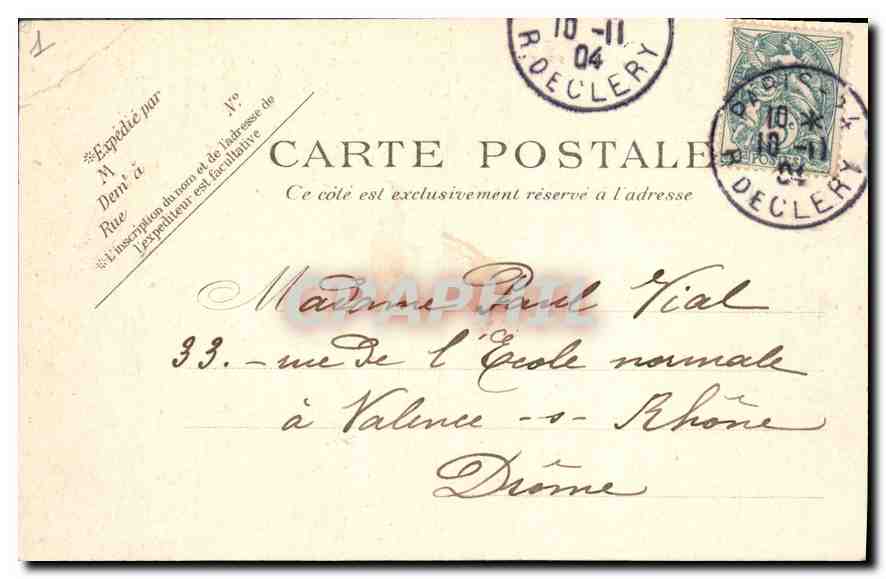 1
※Expédié par
M
Demt à
Rue
No
※L'inscription du nom et de l'adresse de
l'expéditeur est facultative
10 -11
04
R. DECLERY
PARIS-44
10 *
10 -11
04
R. DECLERY
POSTES
CARTE POSTALE
Ce côté est exclusivement réservé à l'adresse
CPAPHIL
Madame Paul Vial
33. - rue de l'École normale
à Valence - s - Rhône
Drôme